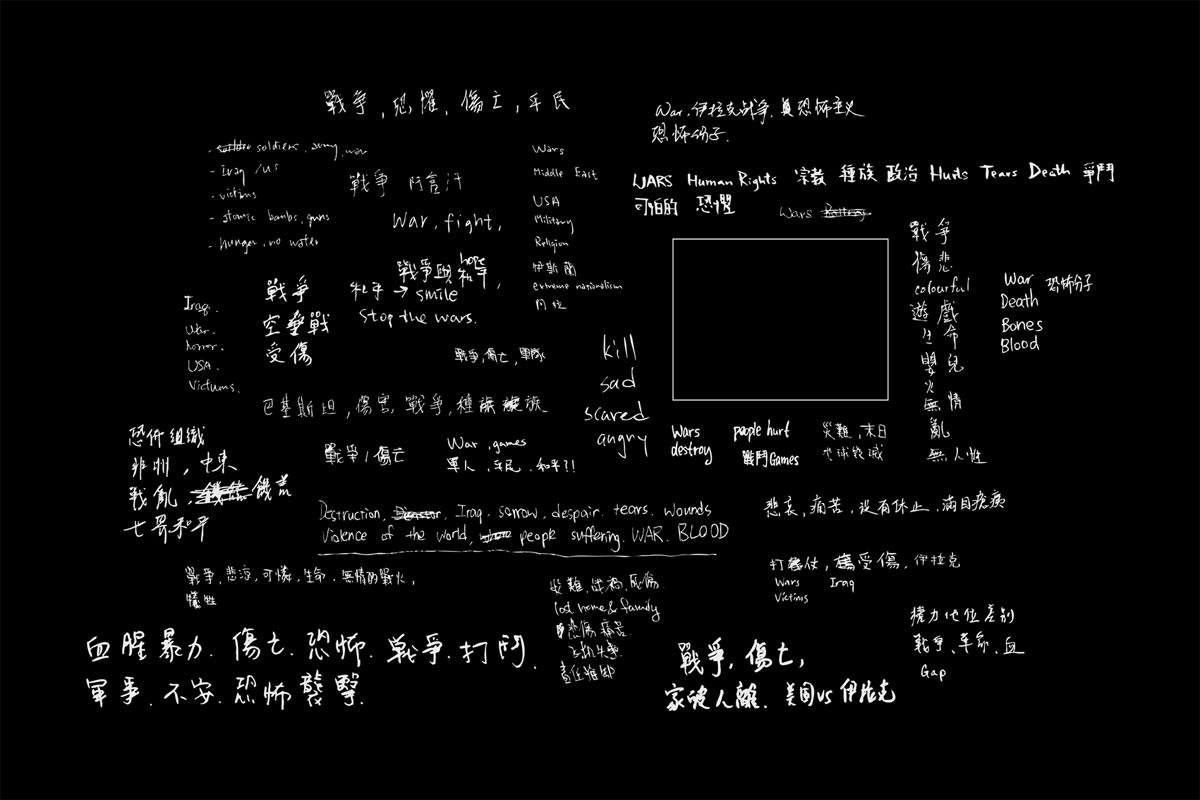 戰爭,恐懼,傷亡,平民
War,伊拉克战争,
恐怖份子.
- soldiers, army, war
- Iraq / US
- victims
- atomic bombs, guns
- hunger, no water
戰爭 阿富汗
War, fight,
戰爭與和平,
hope
和平 → smile
Stop the wars.
Wars
Middle East
USA
Military
Religion
伊斯蘭
extreme nationalism
WARS Human Rights 宗教 種族 政治 Hurts Tears Death 爭鬥
可怕的 恐懼
Wars
戰爭
傷悲
colourful
遊戲
生命
嬰兒
火
無情
亂
無人性
War 恐怖份子
Death
Bones
Blood
Iraq.
War.
horror.
USA.
Victims.
戰爭
空襲戰
受傷
戰爭,傷亡,軍隊
kill
sad
scared
angry
巴基斯坦,傷害,戰爭,種族
恐佈組織
非洲,中東
戰亂, 饑荒
戰爭/傷亡
War, games
軍人,平民,和平?!
Wars
destroy
people hurt
戰鬥Games
災難,末日
地球毀滅
Destruction, Iraq, sorrow, despair, tears, wounds
violence of the world, people suffering. WAR. BLOOD
悲哀,痛苦,沒有休止,滿目瘡痍
戰爭,悲涼,可憐,生命,無情的戰火,
犧牲
lost home & family
悲傷 痛苦
打仗,受傷,伊拉克
Wars Iraq
Victims
權力地位差別
戰爭、革命、血
Gap
血腥暴力.傷亡.恐怖.戰爭.打鬥.
軍事.不安.恐怖襲擊.
戰爭,傷亡,
家破人離.美国vs伊拉克